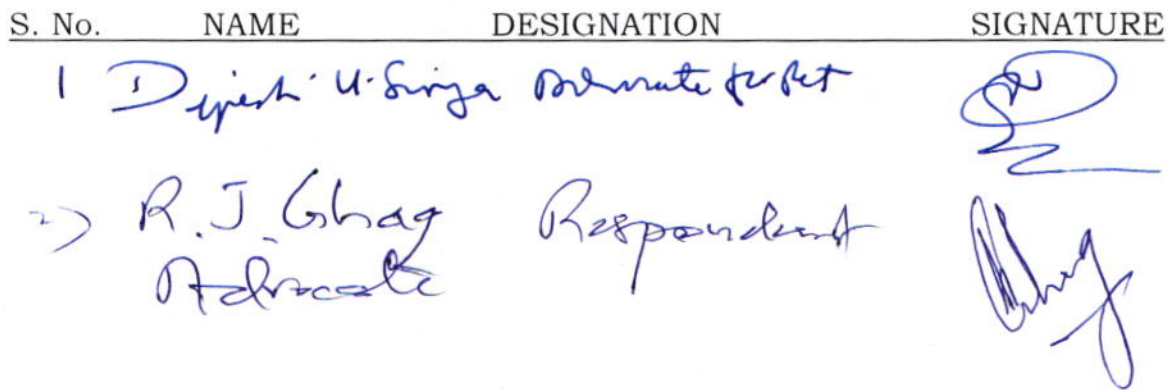 S. No. NAME DESIGNATION SIGNATURE
1 Dipesh U. Siroya Advocate for Pet
2) R. J. Ghag Respondent
Advocate